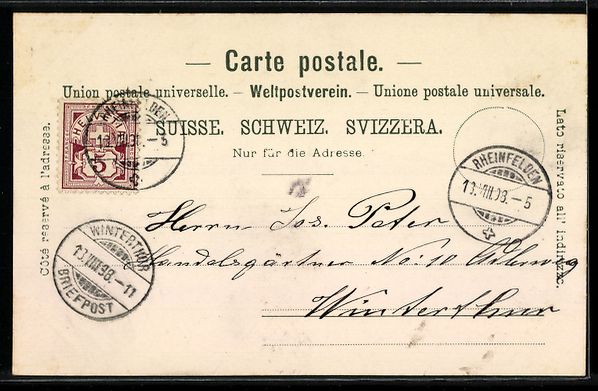 — Carte postale. —
Union postale universelle. — Weltpostverein. — Unione postale universale.
SUISSE. SCHWEIZ. SVIZZERA.
Nur für die Adresse.
Côté réservé à l'adresse.
Lato riservato all' indirizzo.
HELVETIA
5
RHEINFELDEN
13.VIII.98.–5
RHEINFELDEN
13.VIII.98.–5
WINTERTHUR
13.VIII.98.–11
BRIEFPOST
Herrn Jos. Peter
Handelsgärtner No: 10
Winterthur